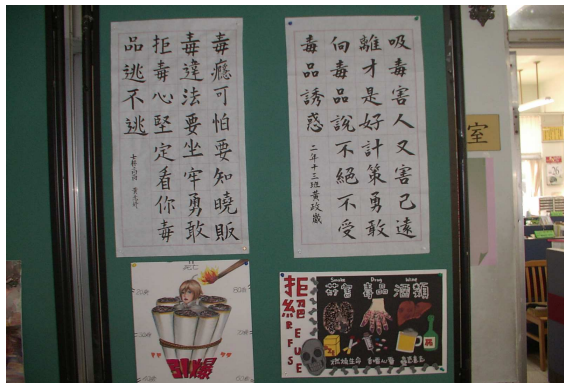 毒癮可怕要知曉販
毒違法要坐牢勇敢
拒毒心堅定看你毒
品逃不逃
吸毒害人又害己遠
離才是好計策勇敢
向毒品說不絕不受
毒品誘惑
二年十三班黃政
室
26
引爆
拒絕
REFUSE
Smoke Drug Wine
菸害 毒品 酒類
燃燒生命